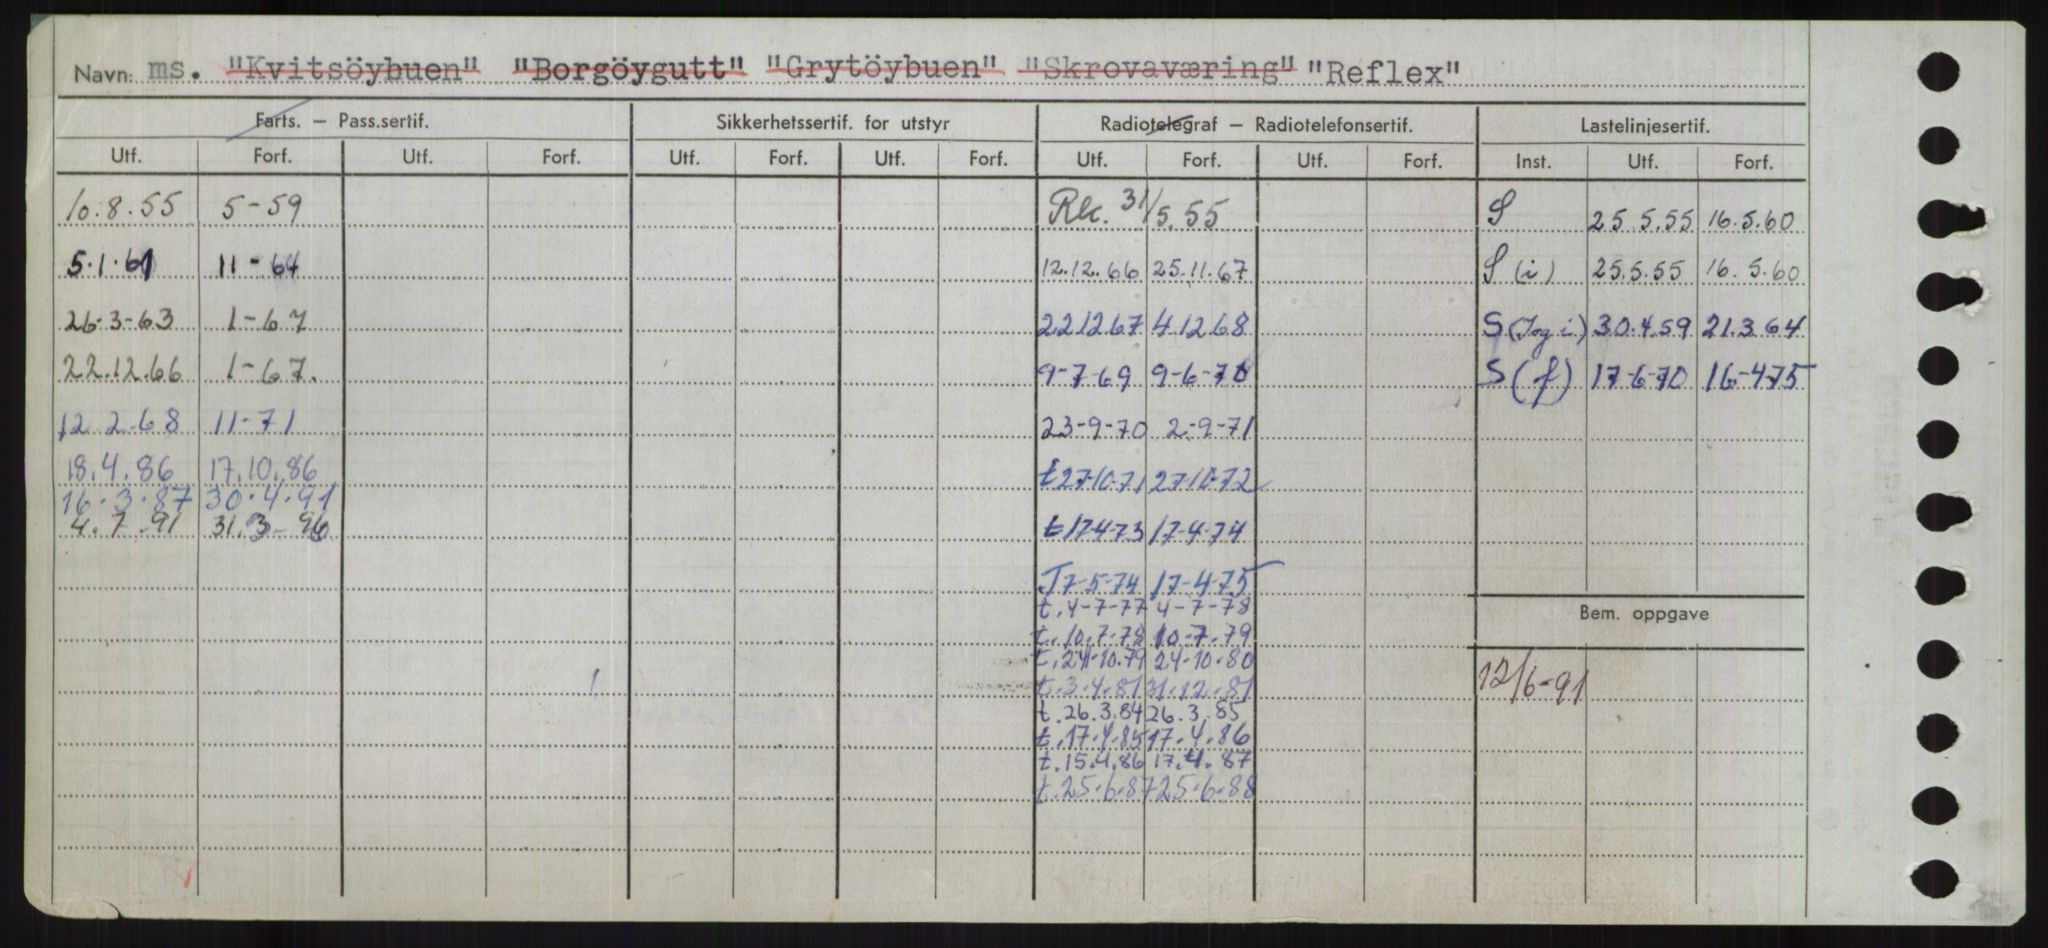 Navn: ms. "Kvitsöybuen" "Borgöygutt" "Grytöybuen" "Skrovaværing" "Reflex"
Farts. – Pass.sertif. Sikkerhetssertif. for utstyr Radiotelegraf – Radiotelefonsertif. Lastelinjesertif.
Utf. Forf. Utf. Forf. Utf. Forf. Utf. Forf. Utf. Forf. Utf. Forf. Inst. Utf. Forf.
10.8.55 5-59 Rk. 31/5.55 S 25.5.55 16.5.60
5.1.61 11-64 12.12.66 25.11.67 S (i) 25.5.55 16.5.60
26-3-63 1-67 22.12.67 4.12.68 S (I og i) 30.4.59 21.3.64
22.12.66 1-67. 9-7-69 9-6-70 S (f) 17-6-70 16-4-75
12.2.68 11-71 23-9-70 2-9-71
18.4.86 17.10.86 t 27-10-71 27-10-72
16.3.87 30.4.91
4.7.91 31.3-96 t 17-4-73 17-4-74
T 7-5-74 17-4-75
t. 4-7-77 4-7-78
Bem. oppgave
t. 10.7-78 10-7.79
t. 24-10.79 24-10-80
t. 3.4.81 31.12.81 12/6-91
t. 26.3.84 26.3.85
t. 17.4.85 17.4.86
t. 15.4.86 17.4.87
t. 25.6.87 25.6.88